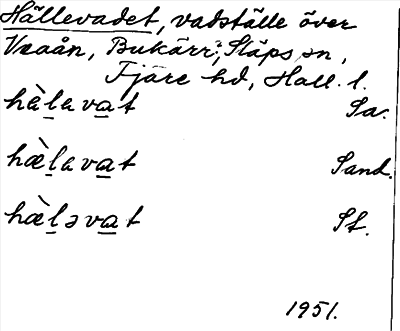 Hällevadet, vadställe över
Vraån, Bukärr, Släps sn,
Fjäre hd, Hall. l.
hæ̀lavat Sa.
hæ̀lavat Sand.
hæ̀ləvat St.
1951.